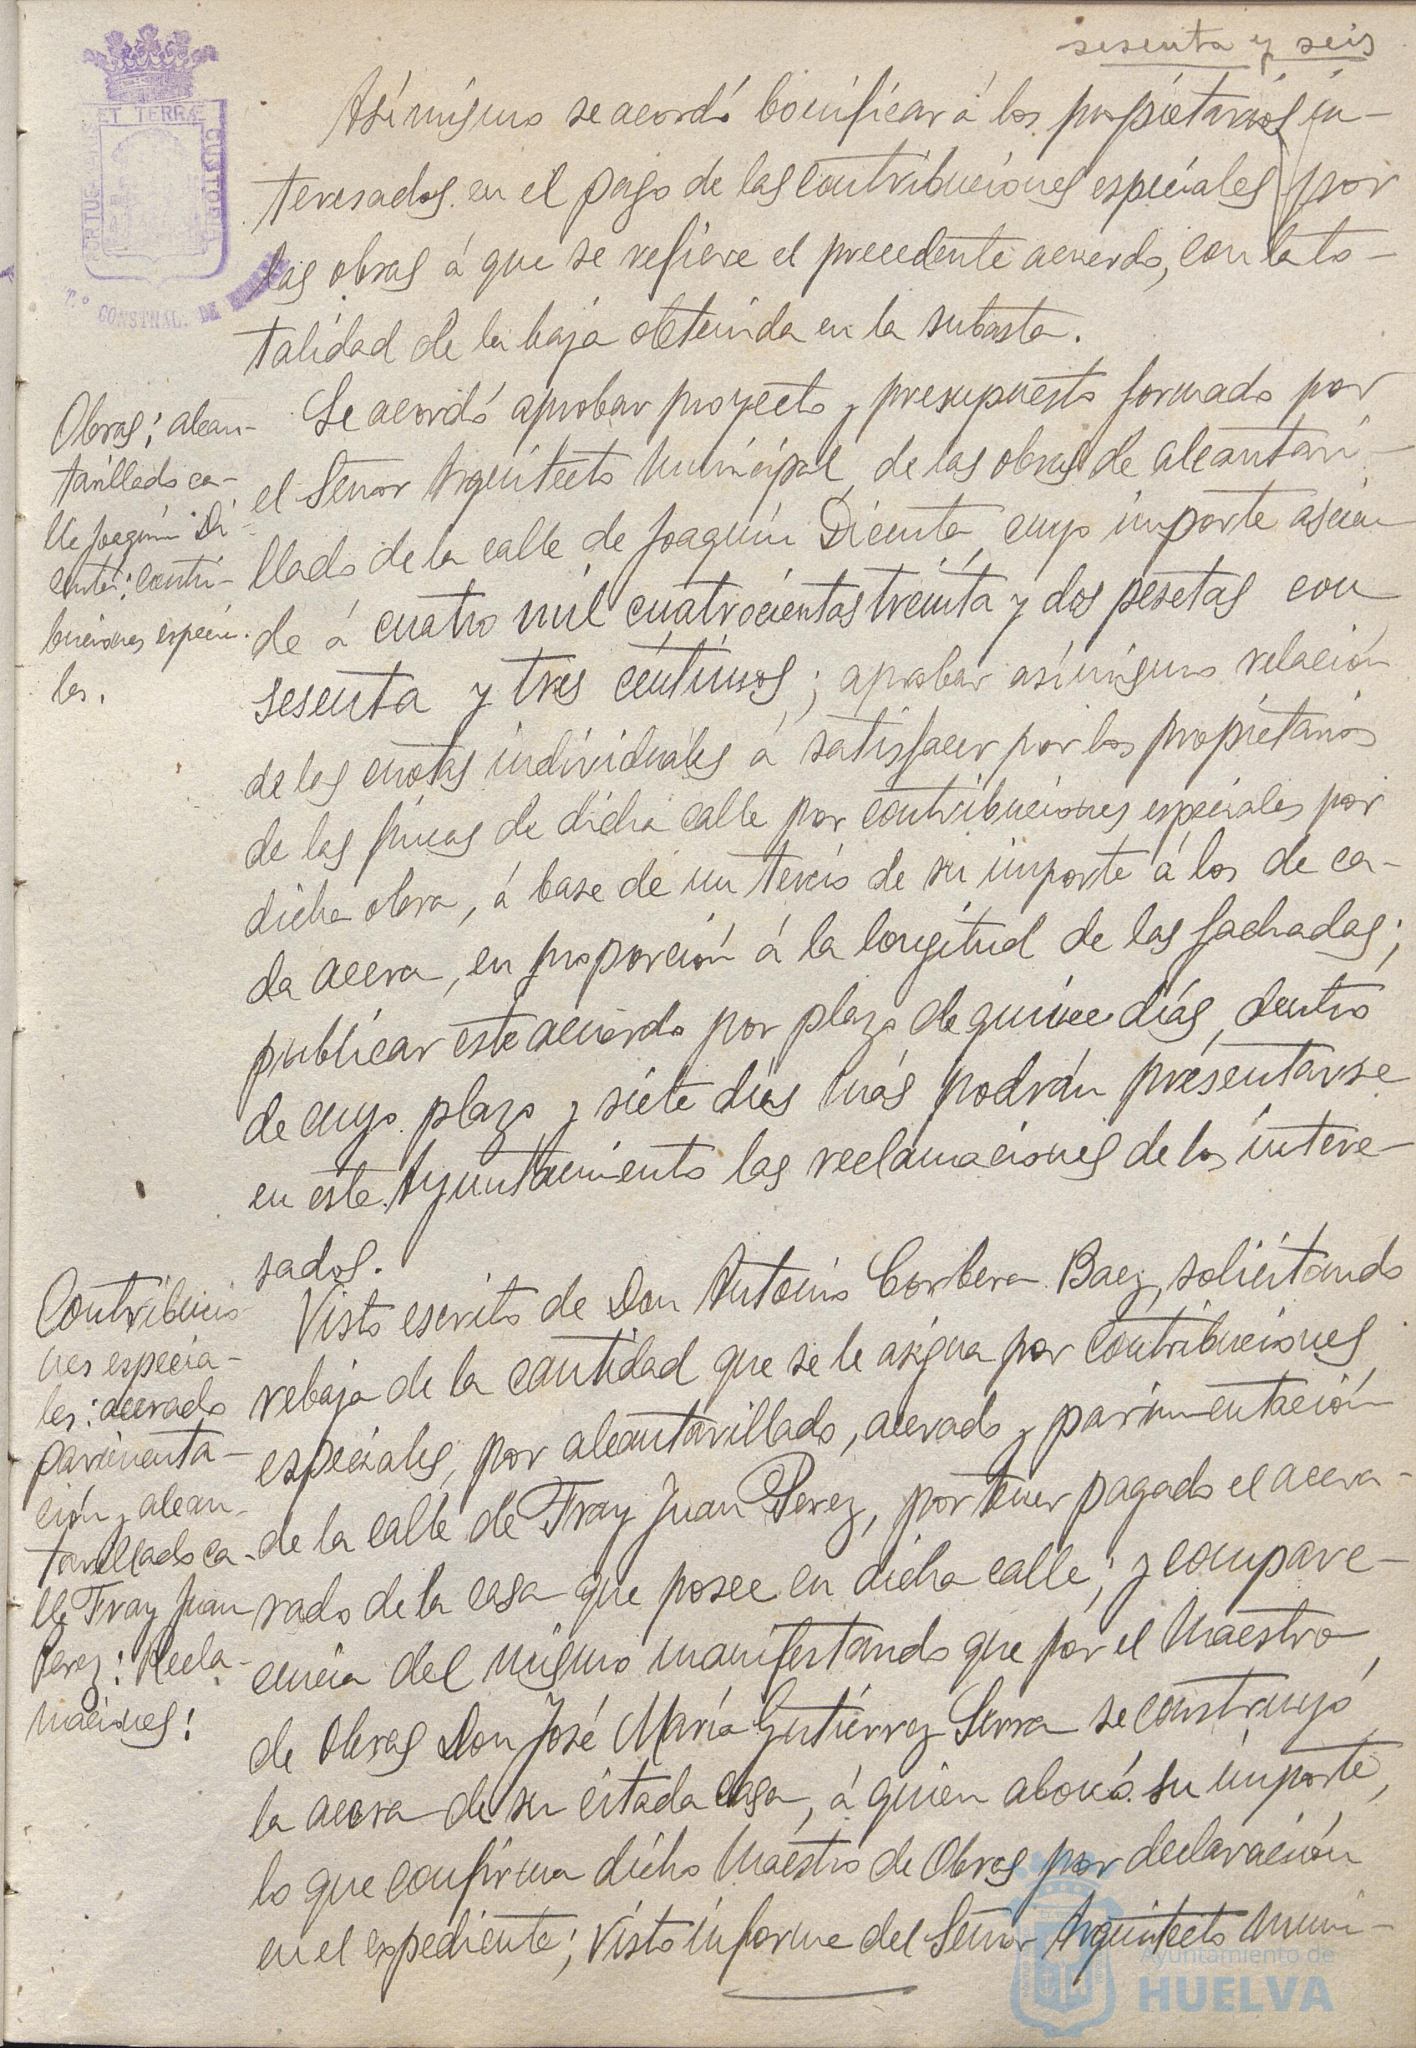 sesenta y seis
ET TERRÆ
CUSTODIA
CONSTNAL. DE
Asímismo se acordó bonificar á los propietarios in-
teresados en el pago de las contribuciones especiales por
las obras á que se refiere el precedente acuerdo, con la to-
talidad de la baja obtenida en la subasta.
Obras; alcan-
tarillado ca-
lle Joaquín Di-
centa; contri-
buciones especia-
les.
Se acordó aprobar proyecto y presupuesto formado por
el Señor Arquitecto Municipal, de las obras de alcantari-
llado de la calle de Joaquín Dicenta, cuyo importe ascien
de á cuatro mil cuatrocientas treinta y dos pesetas con
sesenta y tres céntimos; aprobar asímismo relación
de las cuotas individuales á satisfacer por los propietarios
de las fincas de dicha calle por contribuciones especiales por
dicha obra, á base de un tercio de su importe á los de ca-
da acera, en proporción á la longitud de las fachadas;
publicar este acuerdo por plazo de quince días, dentro
de cuyo plazo y siete días más podrán présentarse
en este Ayuntamiento las reclamaciones de los intere-
sados.
Contribucio
nes especia-
les: acerado
pavimenta-
ción y alcan-
tarillado ca-
lle Fray Juan
Perez: Recla-
maciones!
Visto escrito de Don Antonio Corbera Baez, solicitando
rebaja de la cantidad que se le asigna por contribuciones
especiales, por alcantarillado, acerado y pavimentación
de la calle de Fray Juan Perez, por tener pagado el acera-
rado de la casa que posee en dicha calle; y compare-
cencia del mismo manifestando que por el Maestro
de Obras Don José María Gutiérrez Serra se construyó
la acera de su citada casa, á quien abonó su importe,
lo que confirma dicho Maestro de Obras por declaración
en el expediente; visto informe del Señor Arquitecto Muni-
Ayuntamiento de
HUELVA